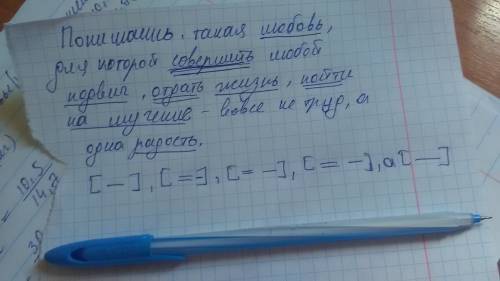 Понимашь, такая любовь,
для которой совершить любой
подвиг, отдать жизнь, пойти
на мучение - вовсе не труд, а
одна радость.
[—], [=], [= —], [= —], а [—]
10,5
14,7
30